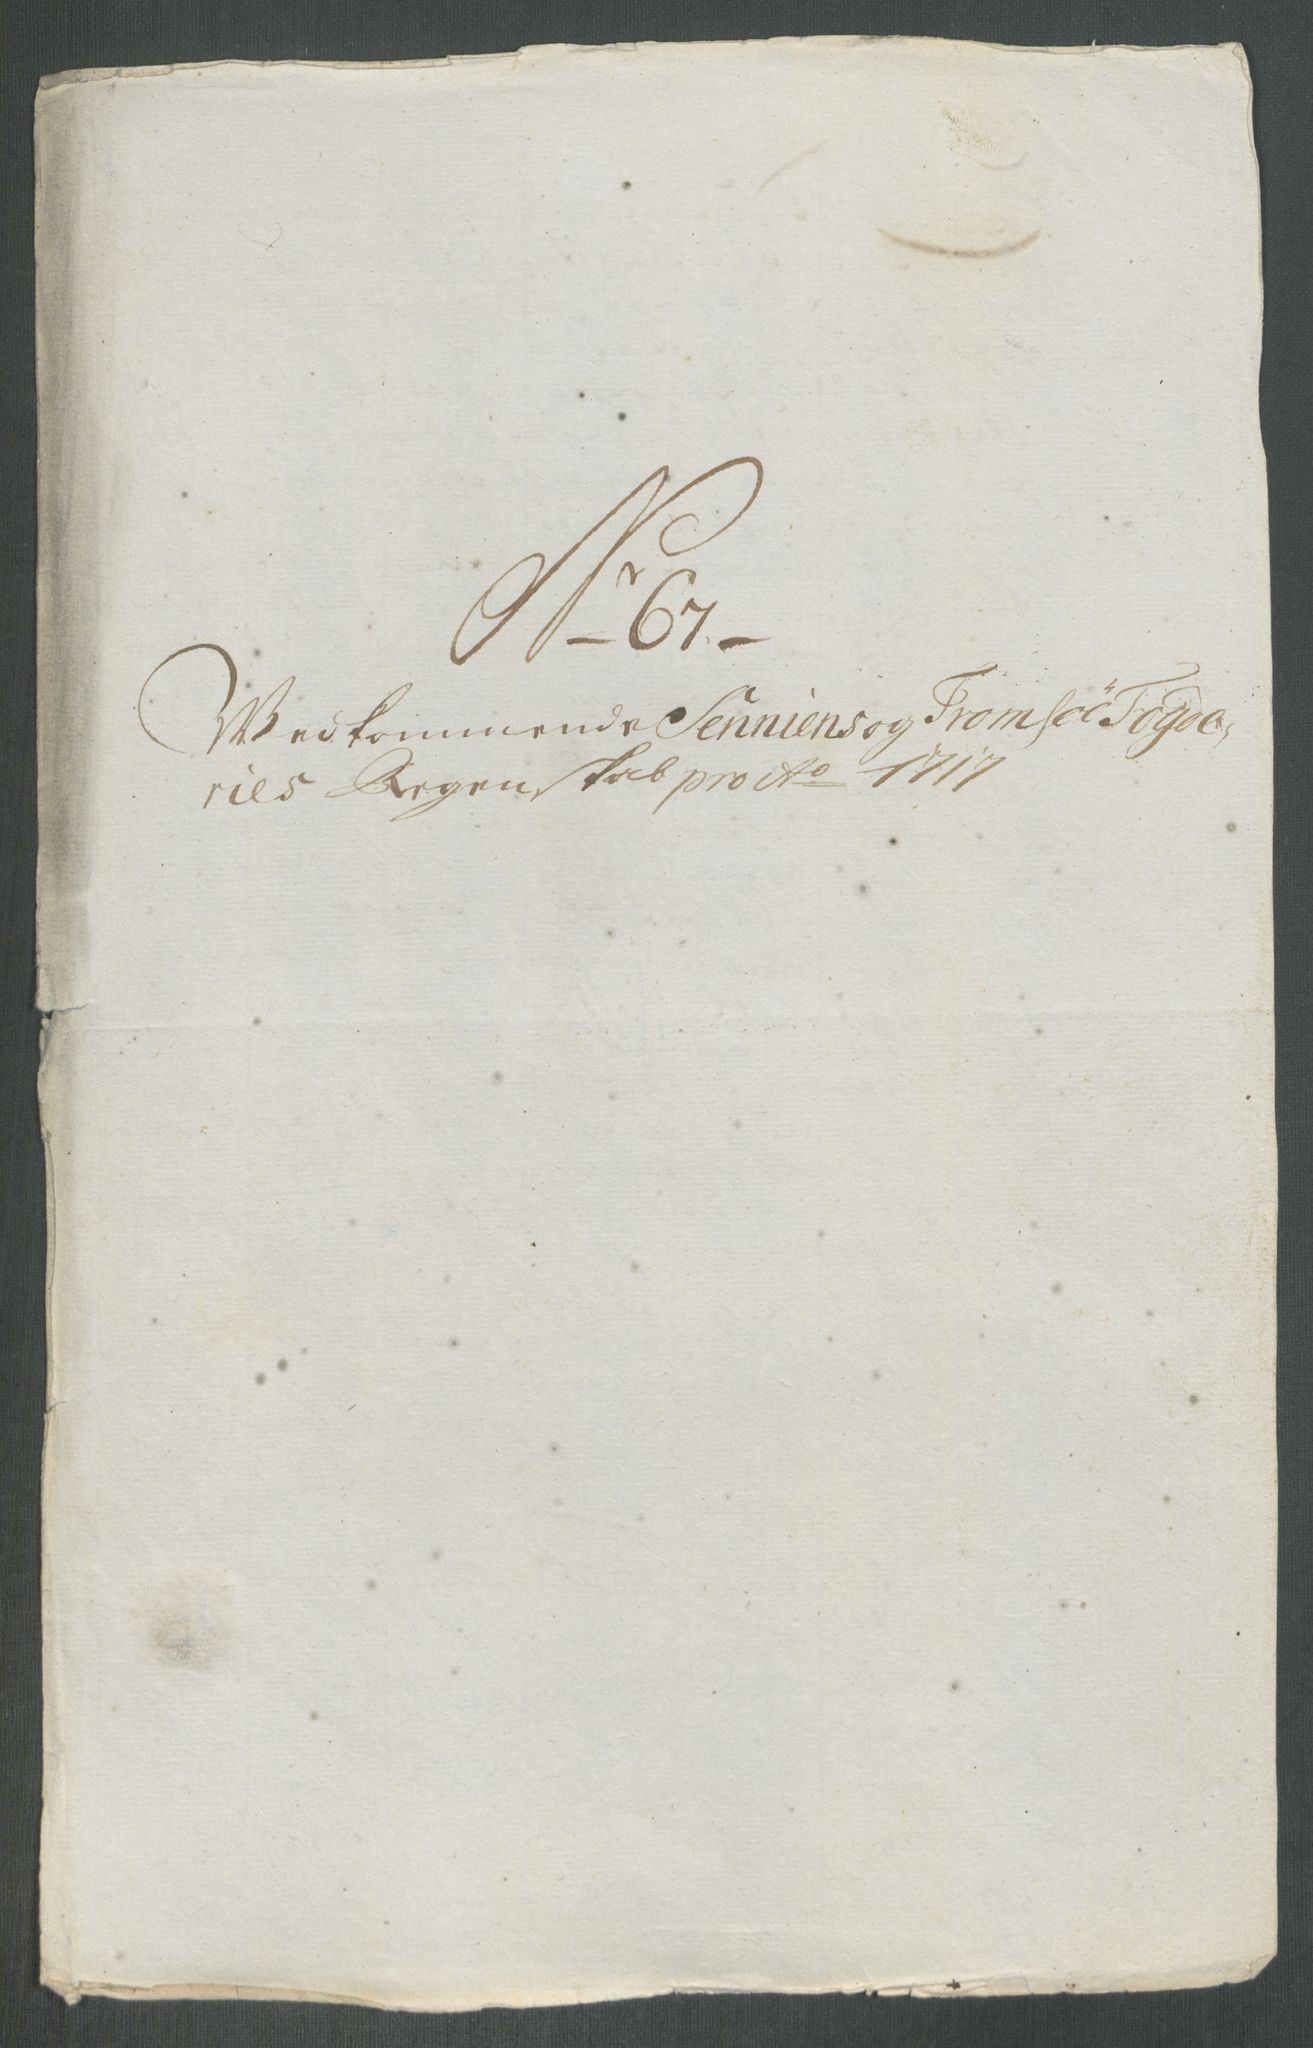 Nr 67.
Vedkommende Senniens og Tromsöe Fogde,
ries Regenskab pro Ao 1717